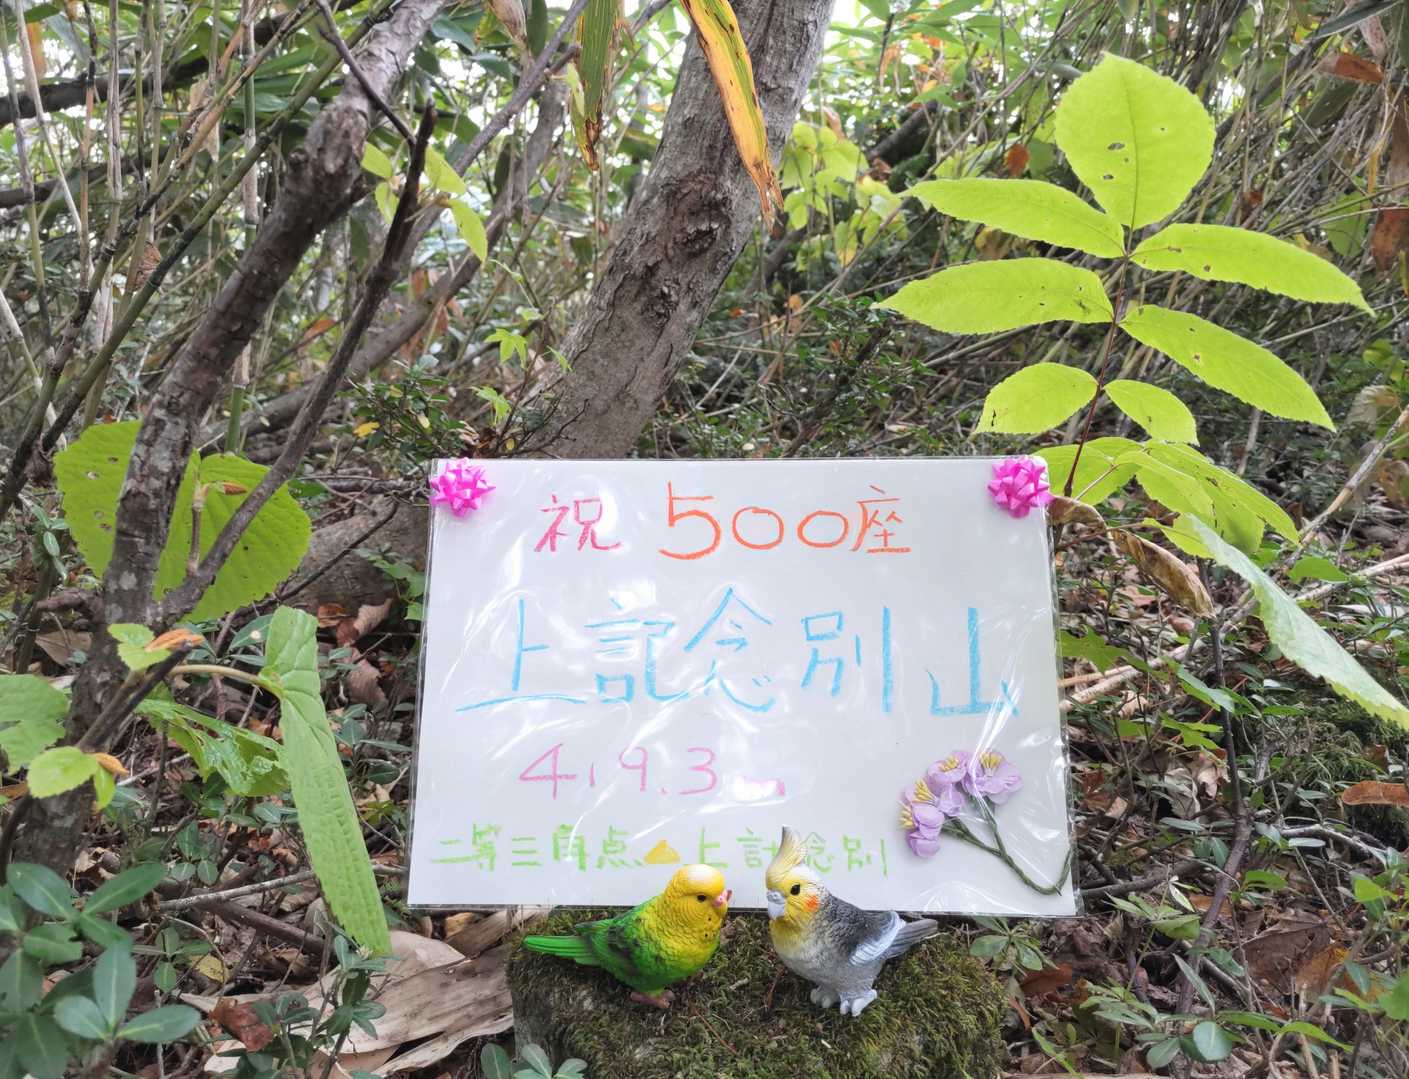 祝 500座
上記念別山
419.3m
二等三角点 上計念別